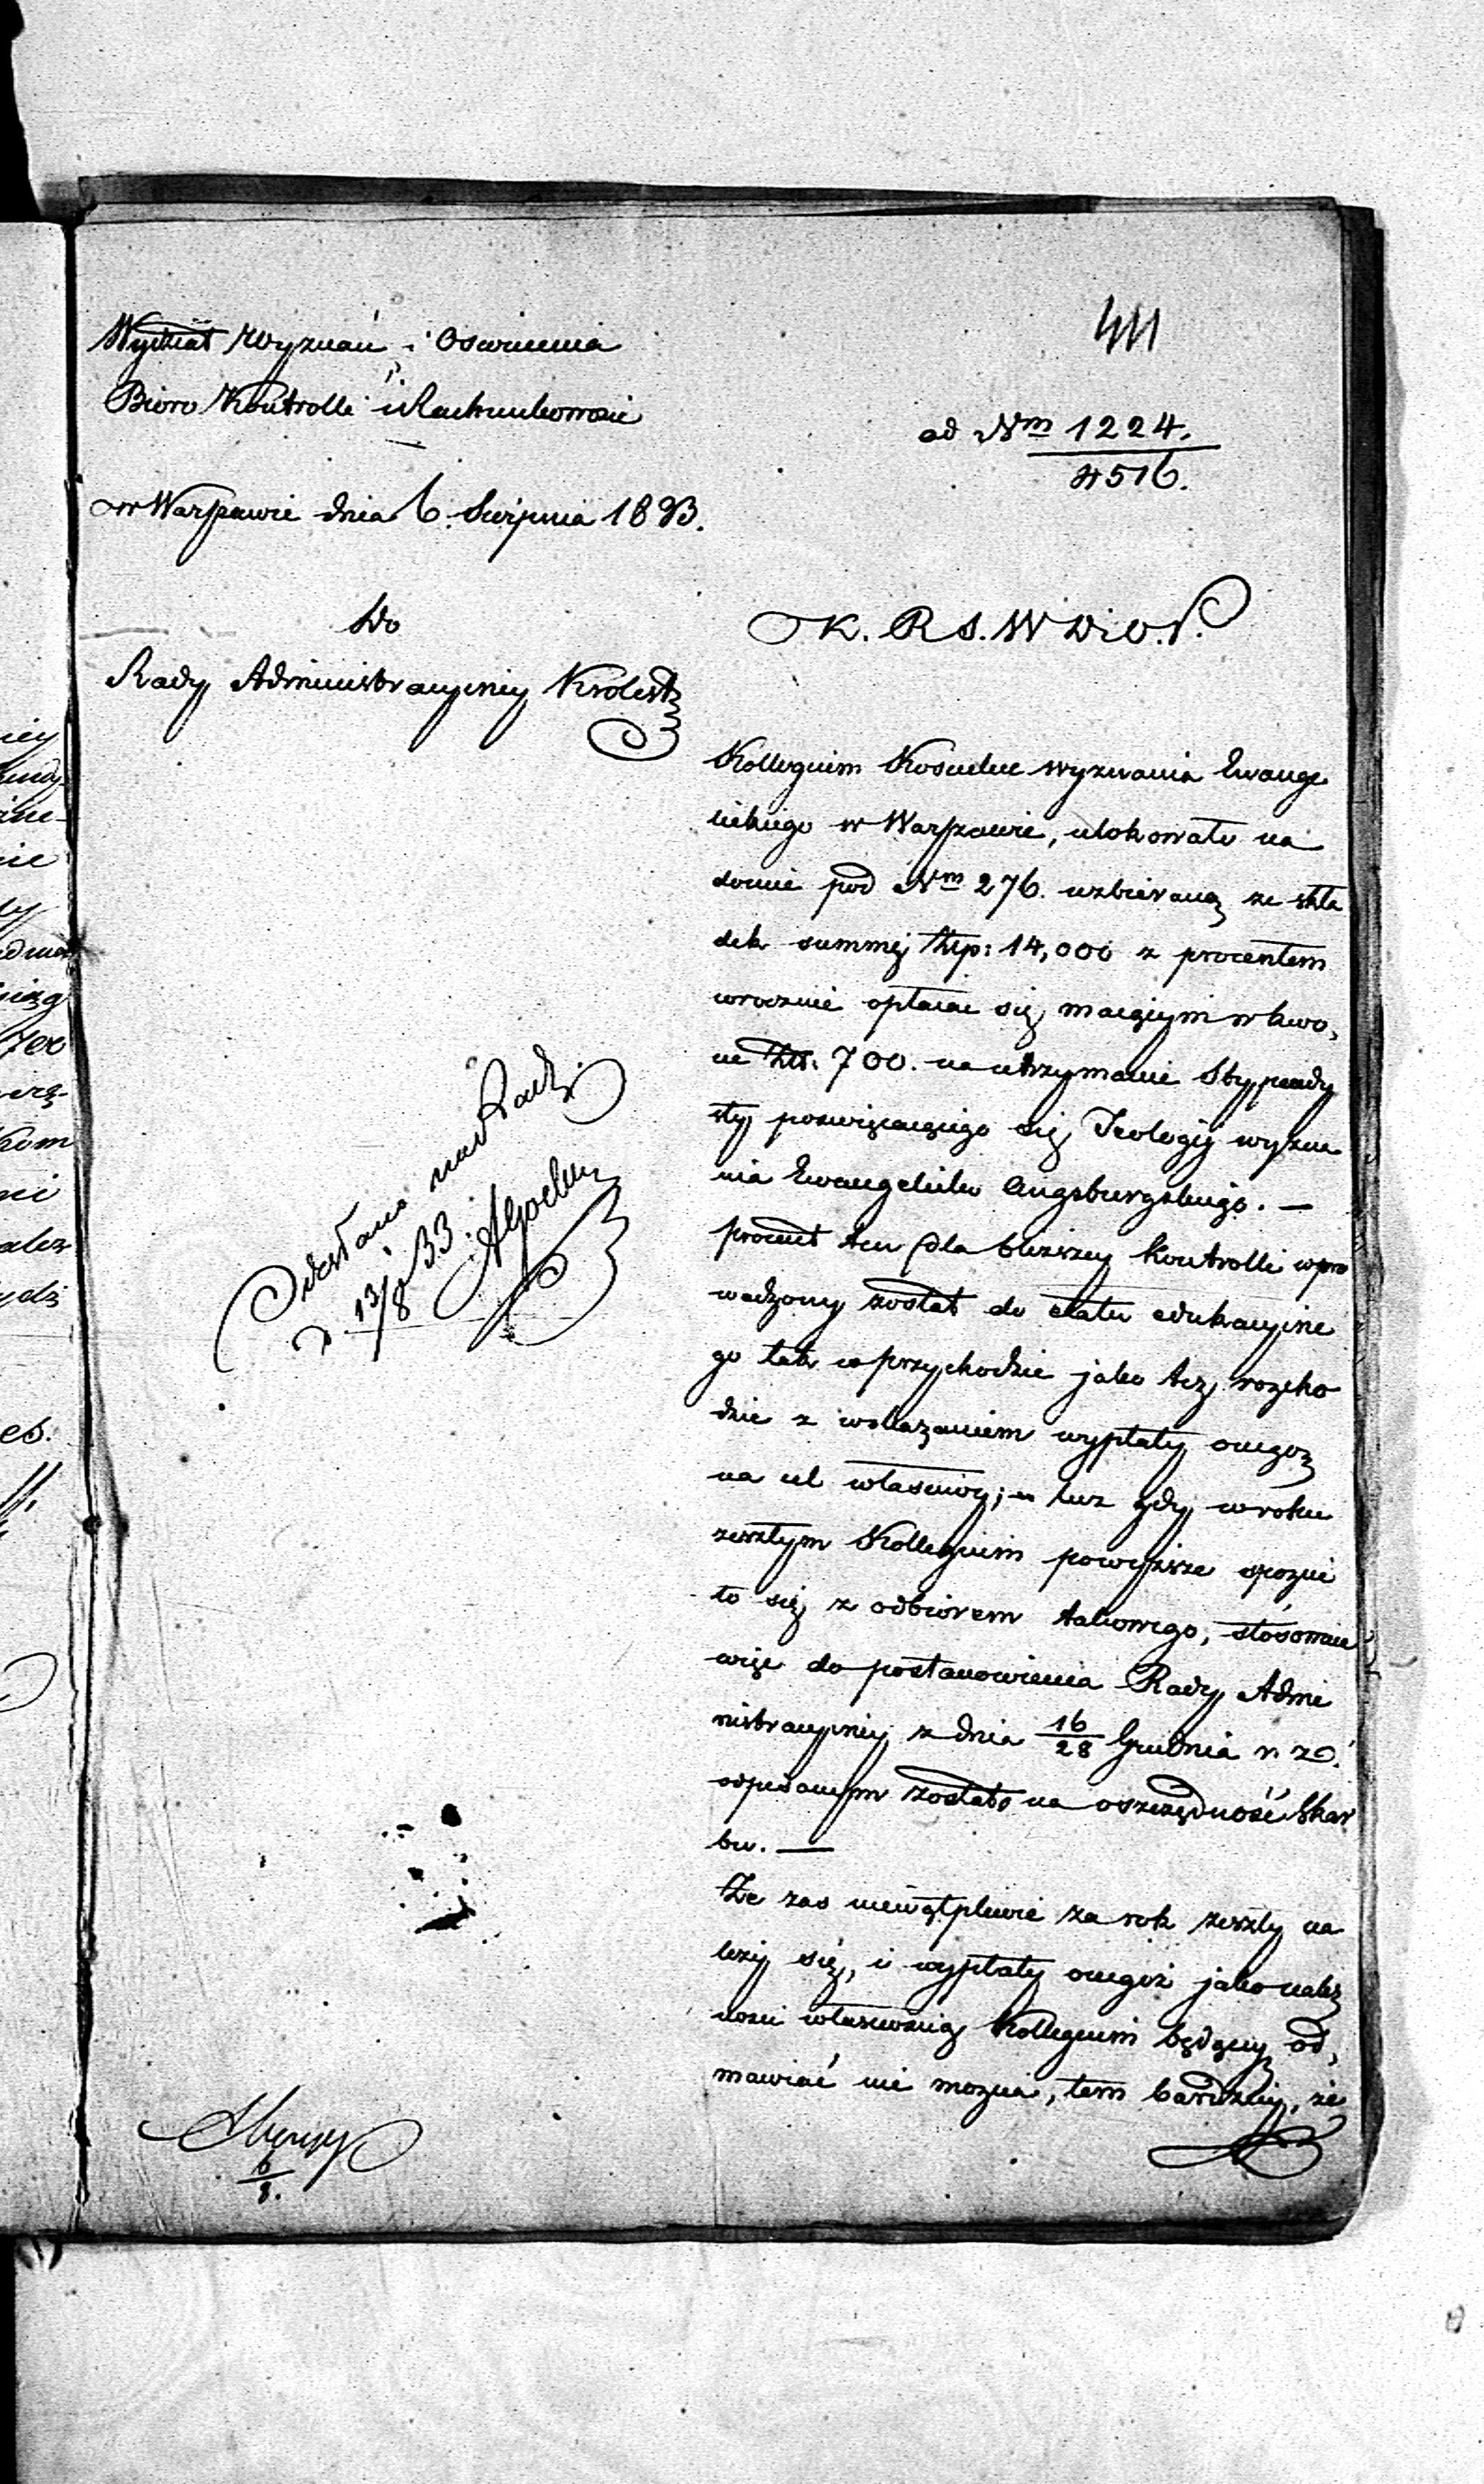 441
Wydział Wyznań i Oswiecenia
Biuro Kontrolli i Rachunkowosci
ad Nm 1224.
4516.
w Warszawie dnia 6. Sierpnia 1833.
Do
Rady Administracyiney Królest
K. R. S. W. D. i O. P.
Kollegium Koscielne wyznania Ewange
lickiego w Warszawie, ulokowało na
domie pod Nm 276. uzbieraną ze skła
dek summę Złp: 14,000 z procentem
corocznie opłacać się maiącym w kwo,
cie Złt. 700. na utrzymanie Stypendy
sty poswięcaiącego się Teologij wyzna
nia Ewangelicko Augsburgskiego. —
procent ten dla bliższey kontrolli wpro
wadzony został do etatu edukacyine
go tak w przychodzie jako też rozcho
dzie z wskazaniem wypłaty onegoż
na cel własciwy; — lecz gdy w roku
zeszłym Kollegium powyższe spoźni
ło się z odbiorem takowego, stósownie
więc do postanowienia Rady Admi
nistracyiney z dnia 16/28 Grudnia r. z.
odpisanym został na oszczędność Skar
bu. —
Że zas niewątpliwie za rok zeszły na
leży się, i wypłaty onegoż jako należ
nosci własnoscią Kollegium będącey od,
mawiać nie można, tem bardziey, że
Odesłano na Radę
d. 13/8 33.
6
8.